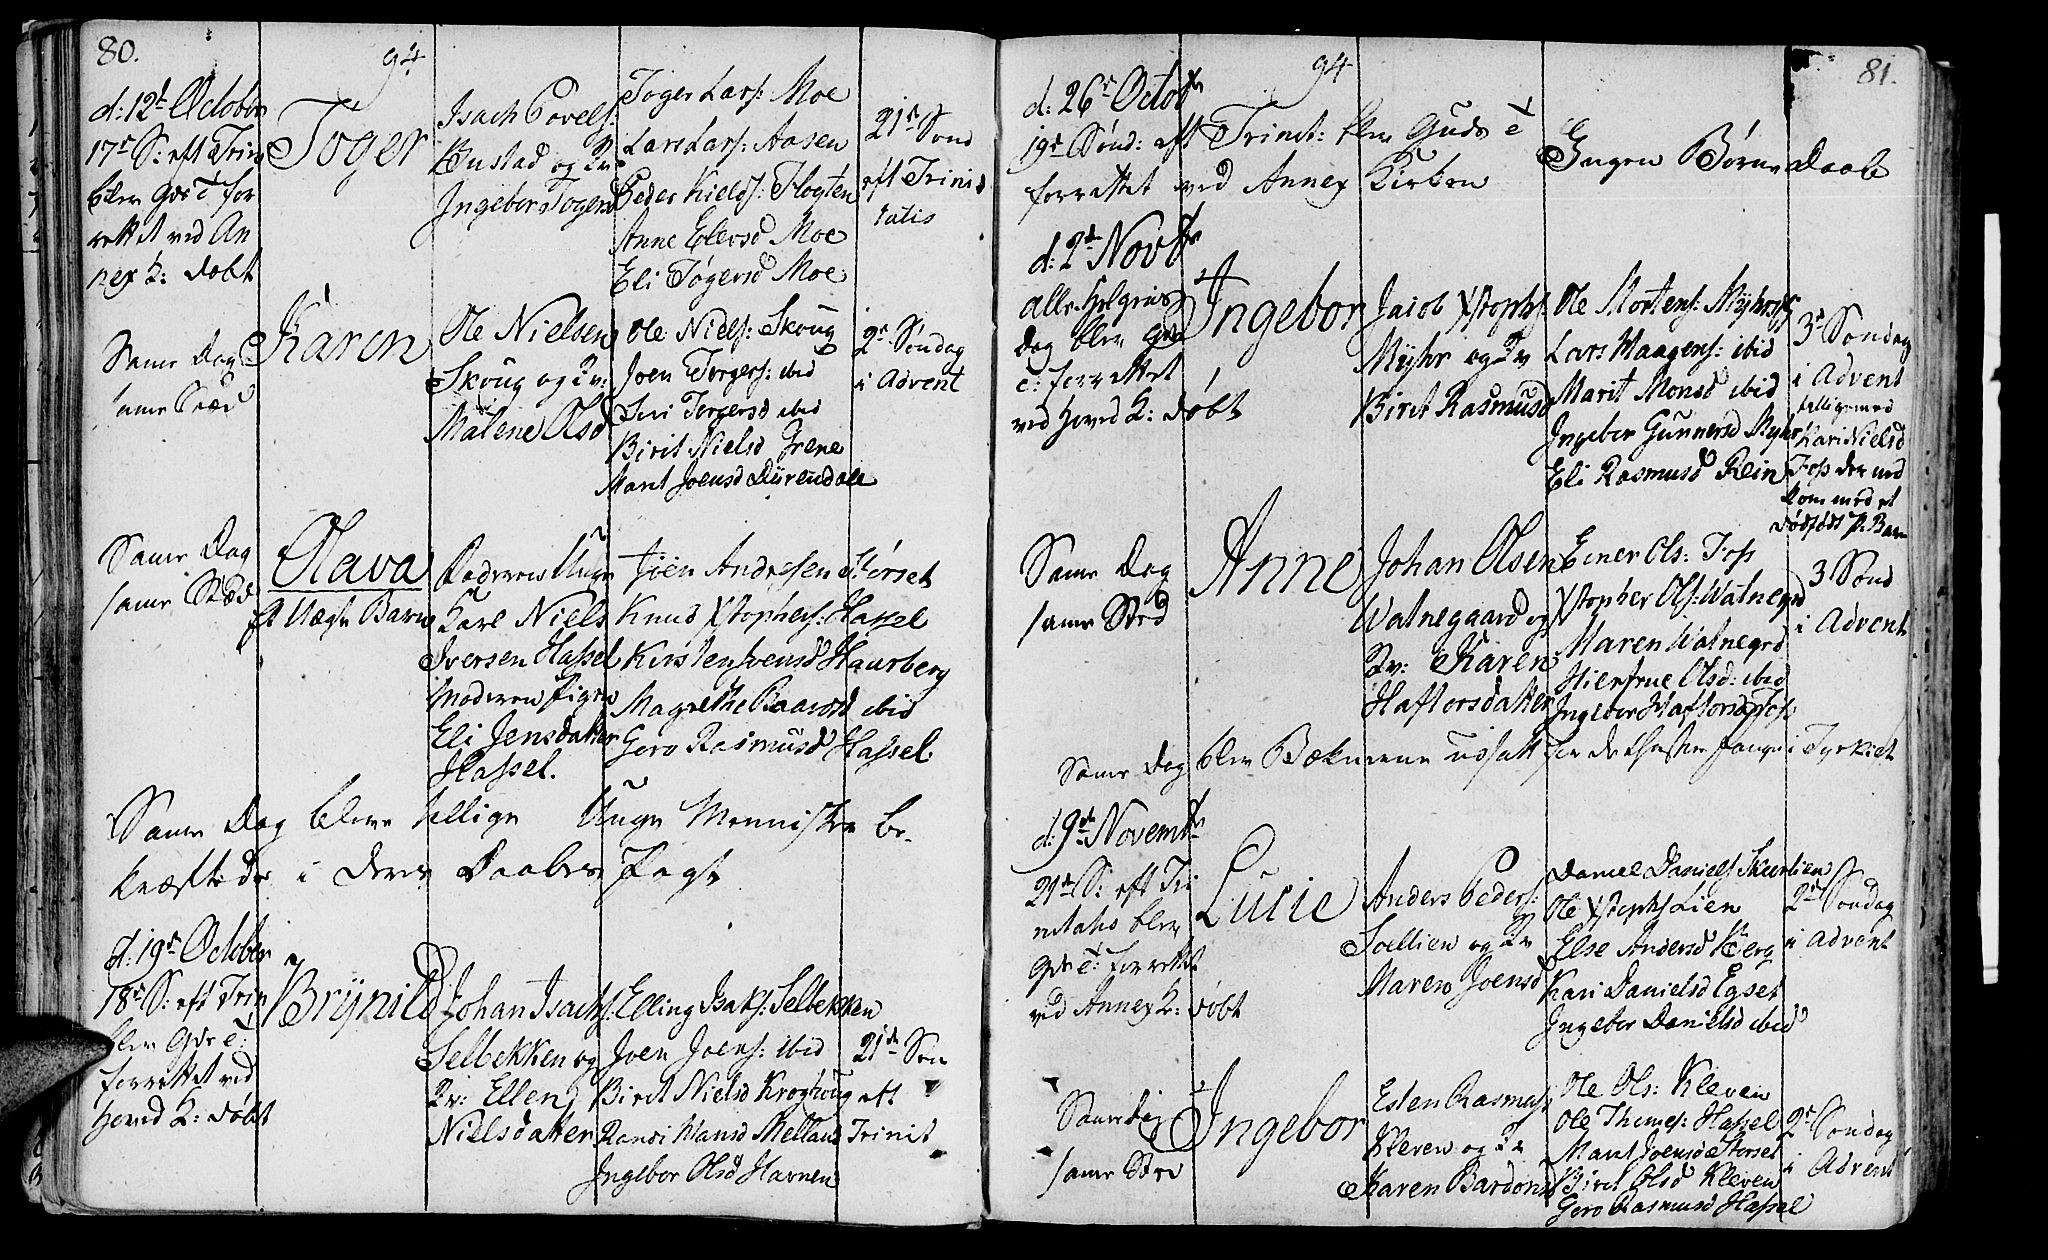 80.
94
d: 12t October
17de S: eft Trin
blev Gds T for
rettet ved An
nex K: døbt
Toger
Isach Povels:
Bustad og Kv
Ingebor Togersd
Toger Lars: Moe
Lars Lars: Aasen
Peder Kields: Flogten
Anne Eliersd Moe
Eli Togersd Moe
21de Sond
eft Trini
tatis
Same Dag
same Stæd
Karen
Ole Nielsen
Skoug og Kv:
Malene Olsd
Ole Niels: Skoug
Joen Torgers: ibid
Siri Torgersd ibid
Birit Nielsd Grene
Marit Joensd Dürendale
2de Søndag
i Advent
Same Dag
same Stæd
Olava
et Uægte Barn
Faderen Unge
Karl Niels
Iversen Hassel
Moderen Pigen
Eli Jensdatter
Hassel.
Joen Andersen Størset
Knud Xstophers: Hassel
Kirsten Joensd Haurberg
Magrethe Baarsd ibid
Goro Rasmusd Hassel.
Same Dag bleve tellige Unge Mennisker be-
kræftede i deres Daabes Pagt
d: 19de October
18de S: eft Trin
blev Gds T:
forrettet ved
hoved K: døbt
Brynild
Johan Isachs:
Selbekken og
Kv: Ellen
Nielsdatter
Elling Isaks: Selbekken
Joen Joens: ibid
Birit Nielsd Kroghoug
Randi Hansd Mellaus
Ingebor Olsd Havnen
21de Son
eft
Trinit
81.
94
d: 26de Octobr
19de Sønd: eft Trinit: blev Guds T
forrettet ved Annex Kirken
Ingen Børne Daab
d: 2de Novbr
alle Helgens
Dag blev Gds
T: forrettet
ved hoved K: døbt
Ingebor
Jacob Xstophs:
Myhr og Kv
Birit Rasmusd
Ole Mortens: Myhr
Lars Haagens: ibid
Marit Monsd ibid
Ingebor Gunnersd Myhr
Eli Rasmusd Rein
3de Søndag
i Advent
tilligemed
Kari Nielsd
Foss der ned
kom med et
dødfødt P: Barn
Same Dag
same Sted
Anne
Johan Olsen
Watnegaard og
Kv: Karen
Haftorsdatter
Einer Ols: Foss
Xstopher Ols: Watnegrd
Maren Watnegrd
Hierfrue Olsd: ibid
Ingebor Haftorsd Foss
3 Sond
i Advent
Same Dag blev Bækenerne udsatt for de Christne Fange i Tyrkiet
d: 9de Novembr
21de S: eft Tri
nitatis blev
Gds T: forrettet
ved Annex K: døbt
Lucie
Anders Peders:
Soellien og Kv
Maren Joensd
Daniel Daniels: Skarlien
Ole Xstophs Lien
Else Andersd Berg
Kari Danielsd Egset
Ingebor Danielsd ibid
2de Søndag
i Advent
Same Dag
same Sted
Ingebor
Esten Rasmus:
Kleven og Kv
Karen Bardonsd
Ole Ols: Kleven
Ole Thomes: Hassel
Marit Joensd Storset
Birit Olsd Kleven
Goro Rasmusd Hassel
2de Søndag
i Advent